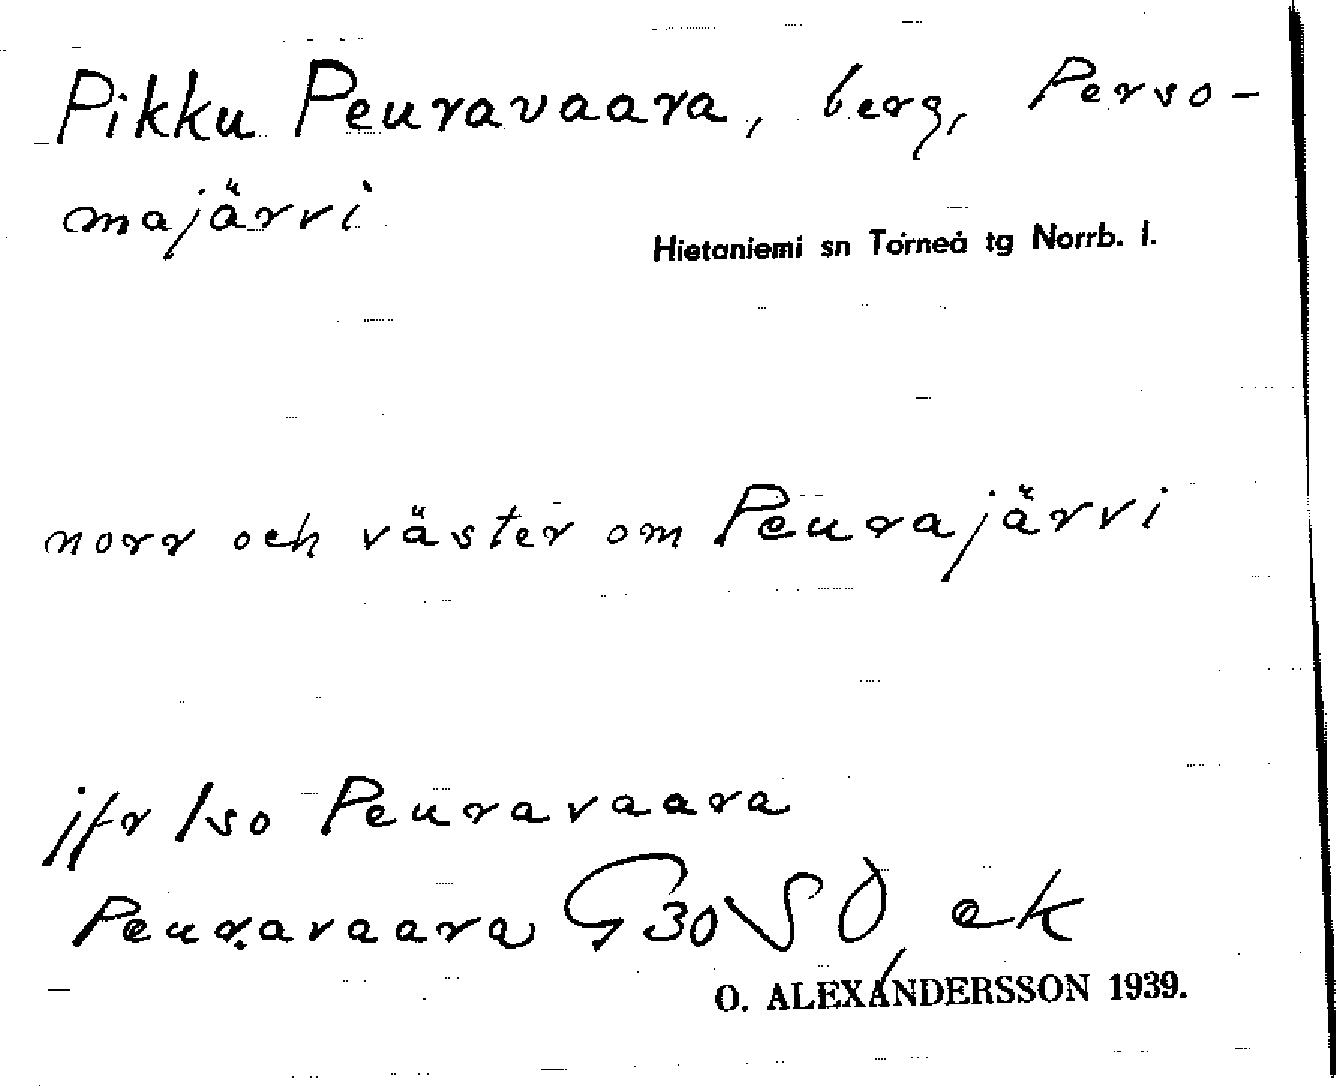 Pikku Peuravaara, berg, Perso-
majärvi
Hietaniemi sn Torneå tg Norrb. l.
norr och väster om Peurajärvi
jfr Iso Peuravaara
Peuravaara G 30 SO ek
O. ALEXANDERSSON 1939.